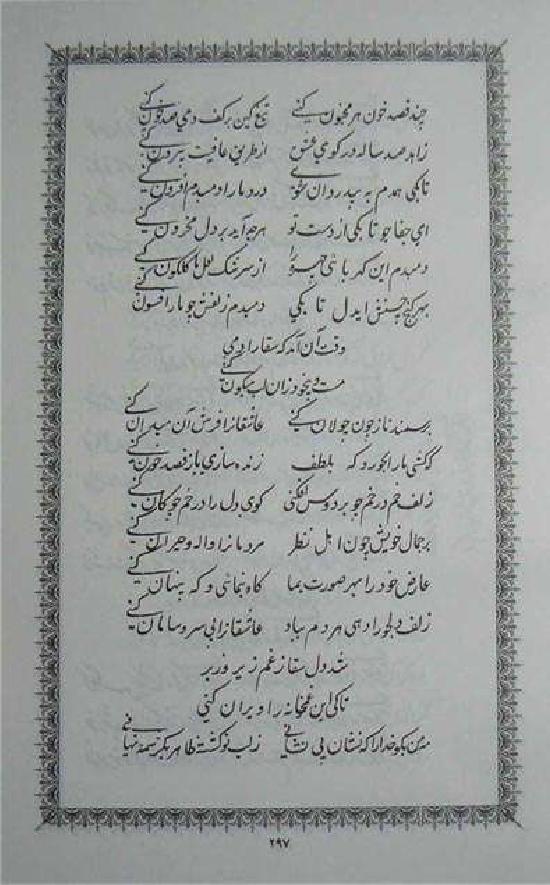 چند قصد خون هر مجنون کنی تیغ کین بر کف دمی صد خون کنی
زاهد صد ساله در کوی از طریق عافیت بیرون کنی
تا بکی همدم به بیدردان شوی درد ما را دمبدم افزون کنی
ای جفاجو تا بکی از دست تو هر چه آید بر دل محزون کنی
دمبدم این کهربائی چهره را از سرشک لعل ما گلگون کنی
بهر گنج ایدل تا بکی دمبدم زلفش چو مار افسون کنی
وقت آن آمد که سقا را دمی
مست و بیخود زان لب میگون کنی
بر سمند ناز چون جولان کنی عاشقانرا فرش آن میدان کنی
کشی ما را بجور و گه بلطف زنده سازی باز قصد خون کنی
زلف خم در خم چو بر دوش افکنی گوی دل را در خم چوگان کنی
بر جمال خویش چون اهل نظر مردمانرا واله و حیران کنی
عارض خود را بهر صورت بما گاه بنمائی و گه پنهان کنی
زلف دلجو را دهی هر دم بباد عاشقانرا بی سر و سامان کنی
شد دل سقا ز غم زیر و زبر
تا کی این غمخانه را ویران کنی
بگو خدا را که نشان بی نشانی ز لب تو گشته ظاهر
۲۹۷